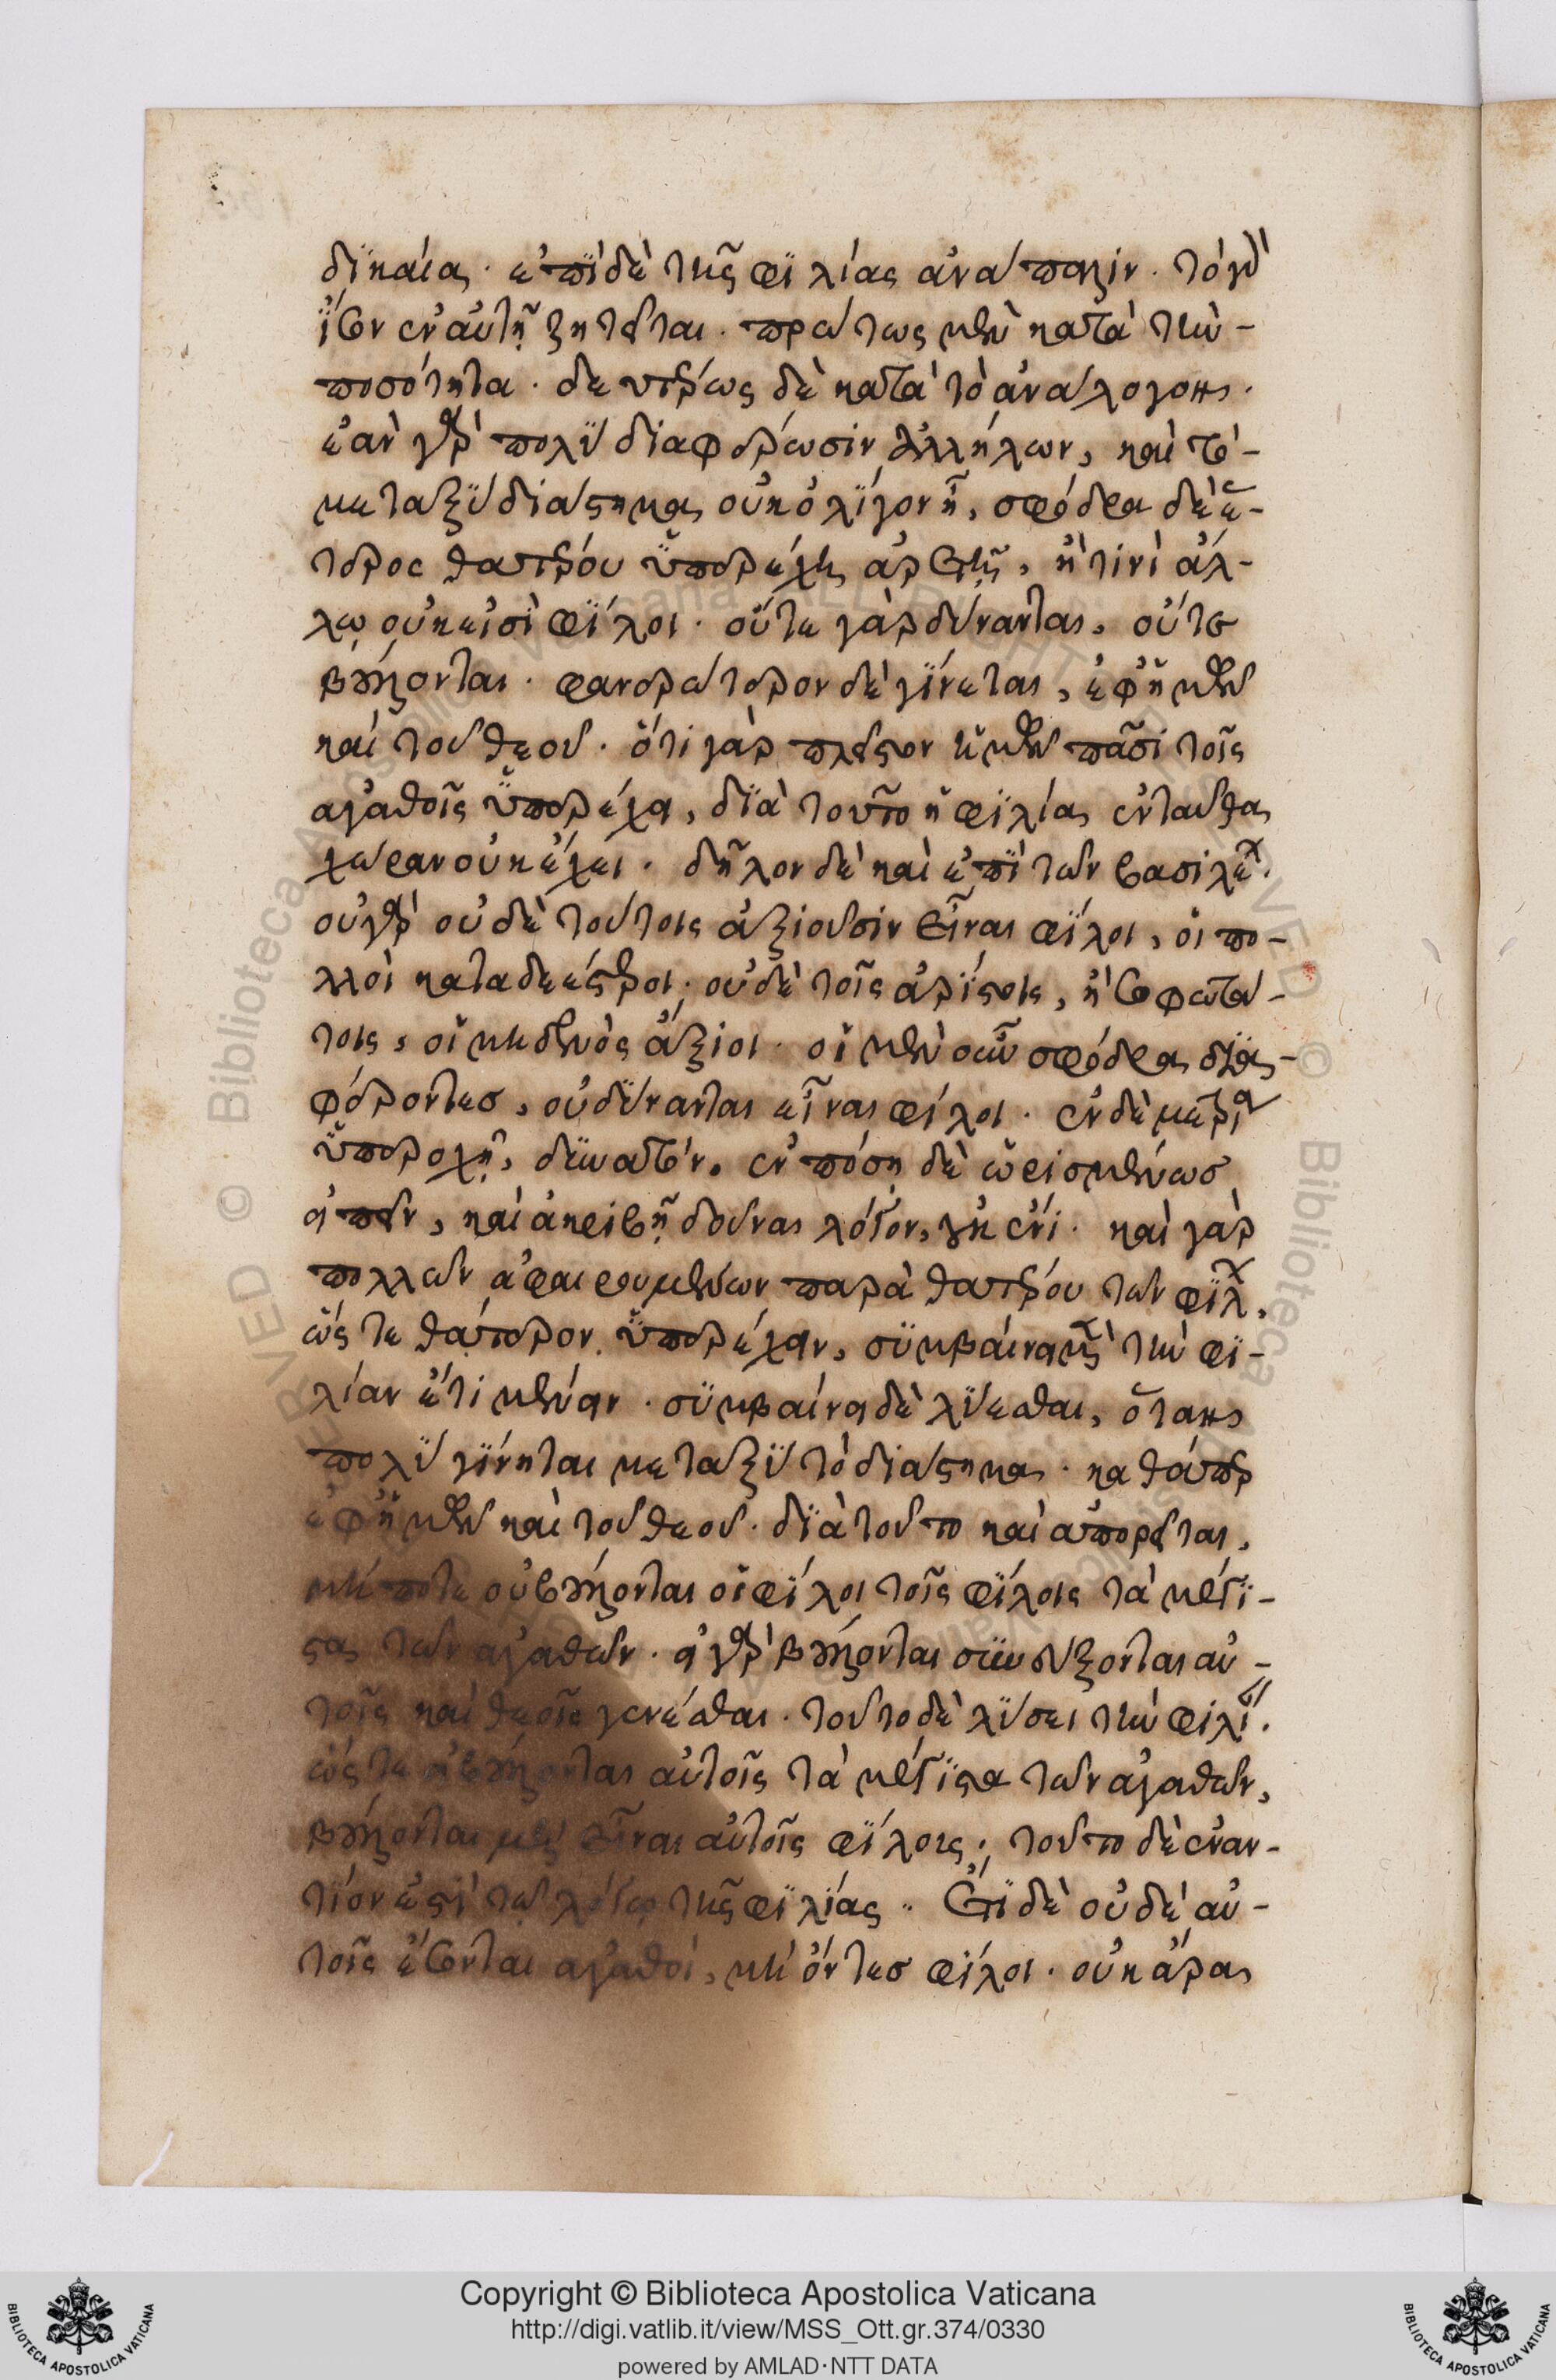 δϊκαία. ἐπῒ δὲ τῆς φϊλίας ἀνάπαλιν. τὸ γὰρ
ἴσον ἐν αὐτῇ ζητεῖται. πρώτως μὲν κατὰ τὴν-
ποσότητα. δευτέρως δὲ κατὰ τὸ ἀνάλογον.
ἐὰν γὰρ πολῢ διαφέρωσιν ἀλλήλων, καὶ τὸ-
μεταξῢ διάστημα οὐκ ὀλίγον ᾖ, σφόδρα δὲ ἕ-
τερος θατέρου ὑπερέχῃ ἀρετῇ, ἤ τινι ἄλ-
λω οὐκ εἰσὶ φΐλοι. οὔτε γὰρ δύνανται, οὔτε
βούλονται. φανερώτερον δὲ γΐνεται, ἐφ' ἡμῶν
καὶ τοῦ θεοῦ. ὅτι γὰρ πλεῖστον ἡμῶν πᾶσι τοῖς
ἀγαθοῖς ὑπερέχει, δϊὰ τοῦτο ἡ φϊλία ἐνταῦθα
χώραν οὐκ ἔχει. δῆλον δὲ καὶ ἐπῒ τῶν βασιλέων.
οὐ γὰρ οὐδὲ τούτοις ἀξιοῦσιν εἶναι φΐλοι, οἱ πο-
λλοὶ καταδεέστεροι. οὐδὲ τοῖς ἀρΐστοις, ἢ σοφωτά-
τοις, οἱ μηδενὸς ἄξιοι. οἱ μὲν οὖν σφόδρα δϊα-
φέροντεσ, οὐ δύνανται εἶναι φίλοι. ἐν δὲ μετρία
ὑπεροχῇ, δυνατόν. ἐν πόσῃ δὲ ὡρισμένωσ
εἰπεῖν, καὶ ἀκριβῆ δοῦναι λόγον, οὐκ ἔνι. καὶ γὰρ
πολλῶν ἀφαιρουμένων παρὰ θατέρου τῶν φΐλων,
ὥστε θάτερον ὑπερέχειν, συμβαίνει μὲν τὴν φϊ-
λίαν ἔτι μένειν. συμβαίνει δὲ λΰεσθαι, ὅταν
πολῢ γΐνηται μεταξῢ τὸ διάστημα. καθάπερ
ἐφ' ἡμῶν καὶ τοῦ θεοῦ. δϊὰ τοῦτο καὶ ἀπορεῖται,
μήποτε οὐ βούλονται οἱ φΐλοι τοῖς φΐλοις τὰ μέγι-
στα τῶν ἀγαθῶν. εἰ γὰρ βούλονται συνεύξονται αὐ-
τοῖς καὶ θεοῖς γενέσθαι. τοῦτο δὲ λύσει τὴν φιλίαν.
ὥστε εἰ βούλονται αὐτοῖς τὰ μέγϊστα τῶν ἀγαθῶν,
βούλονται μὴ εἶναι αὐτοῖς φΐλοις; τοῦτο δὲ ἐναν-
τίον ἐστὶ τῷ λόγῳ τῆς φϊλίας. Ἔτϊ δὲ οὐδὲ αὐ-
τοῖς ἔσονται ἀγαθοί, μὴ ὄντεσ φίλοι. οὐκ ἄρα
Copyright © Biblioteca Apostolica Vaticana
http://digi.vatlib.it/view/MSS_Ott.gr.374/0330
powered by AMLAD·NTT DATA